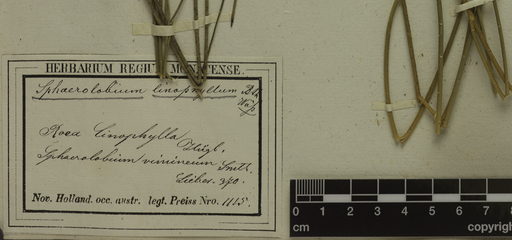 HERBARIUM REGIUM MONACENSE.
Sphaerolobium linophyllum Bth
Roea linophylla Hügl.
Sphaerolobium vimineum Smith.
Sieber. 370.
Nov. Holland. occ. austr. legt. Preiss Nro. 1115.
0 1 2 3 4 5 6 7 8 9
cm copyright